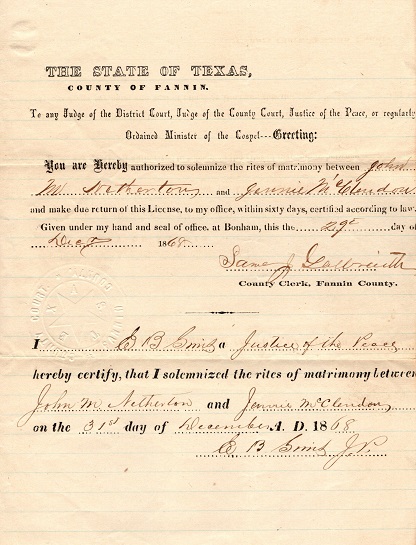 THE STATE OF TEXAS,
COUNTY OF FANNIN.
To any Judge of the District Court, Judge of the County Court, Justice of the Peace, or regularly
Ordained Minister of the Gospel---Greeting:
You are Hereby authorized to solemnize the rites of matrimony between John
M Netherton and Jennie McClendon
and make due return of this License, to my office, within sixty days, certified according to law.
Given under my hand and seal of office. at Bonham, this the 29th day of
Decr 1868
County Clerk, Fannin County.
I E B a Justice of the Peace
hereby certify, that I solemnized the rites of matrimony between
John M Netherton and Jennie McClendon
on the 31st day of December A. D. 1868
E B J.P.